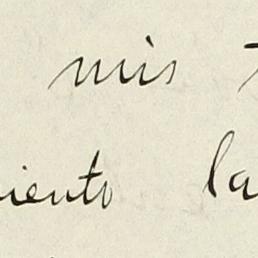 mis
iento la